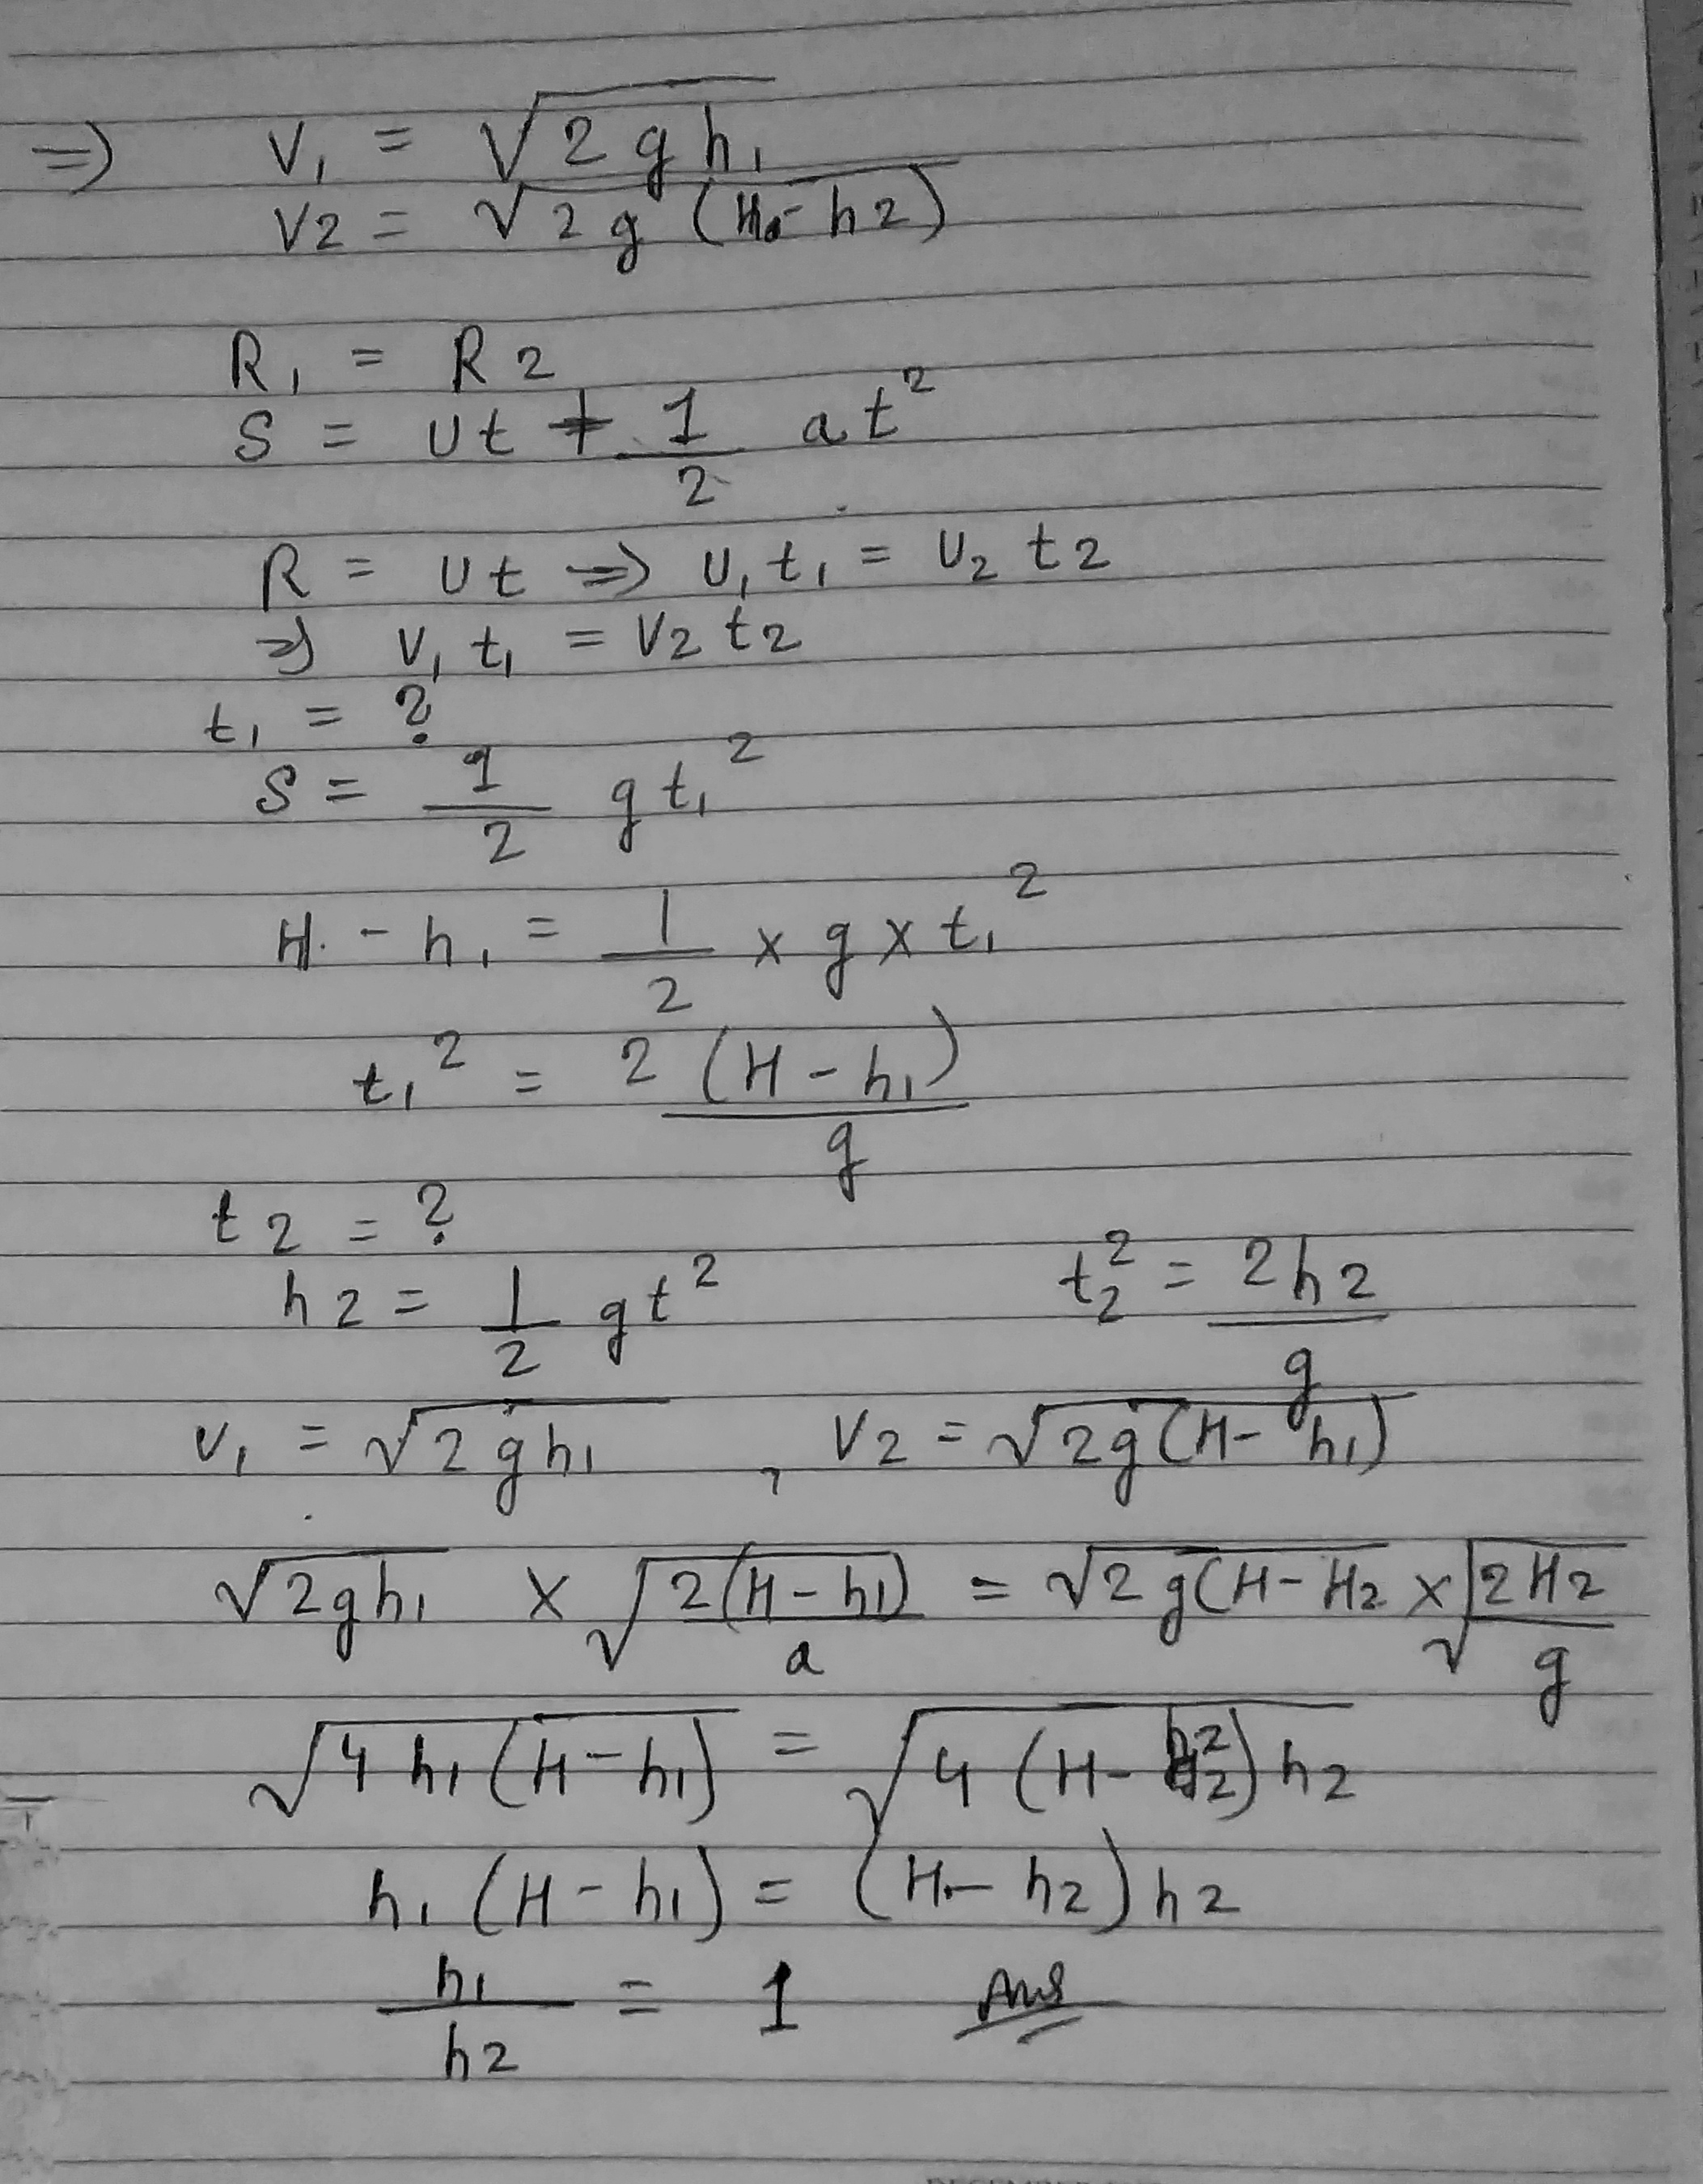 => V₁ = √2gh₁
V2 = √2g(H-h2)
R₁ = R2
S = ut + 1/2 at²
R = ut => U₁t₁ = U₂t2
=> V₁t₁ = V2t2
t₁ = ?
S = 1/2 gt₁²
H - h₁ = 1/2 x g x t₁²
t₁² = 2(H-h₁)/g
t2 = ?
h2 = 1/2 gt² t₂² = 2h2/g
V₁ = √2gh₁ , V2 = √2g(H-h₁)
√2gh₁ x √2(H-h₁)/a = √2g(H-H₂ x √2H2/g
√4h₁(H-h₁) = √4(H-h2)h2
h₁(H-h₁) = (H-h2)h2
h₁/h2 = 1 Ans